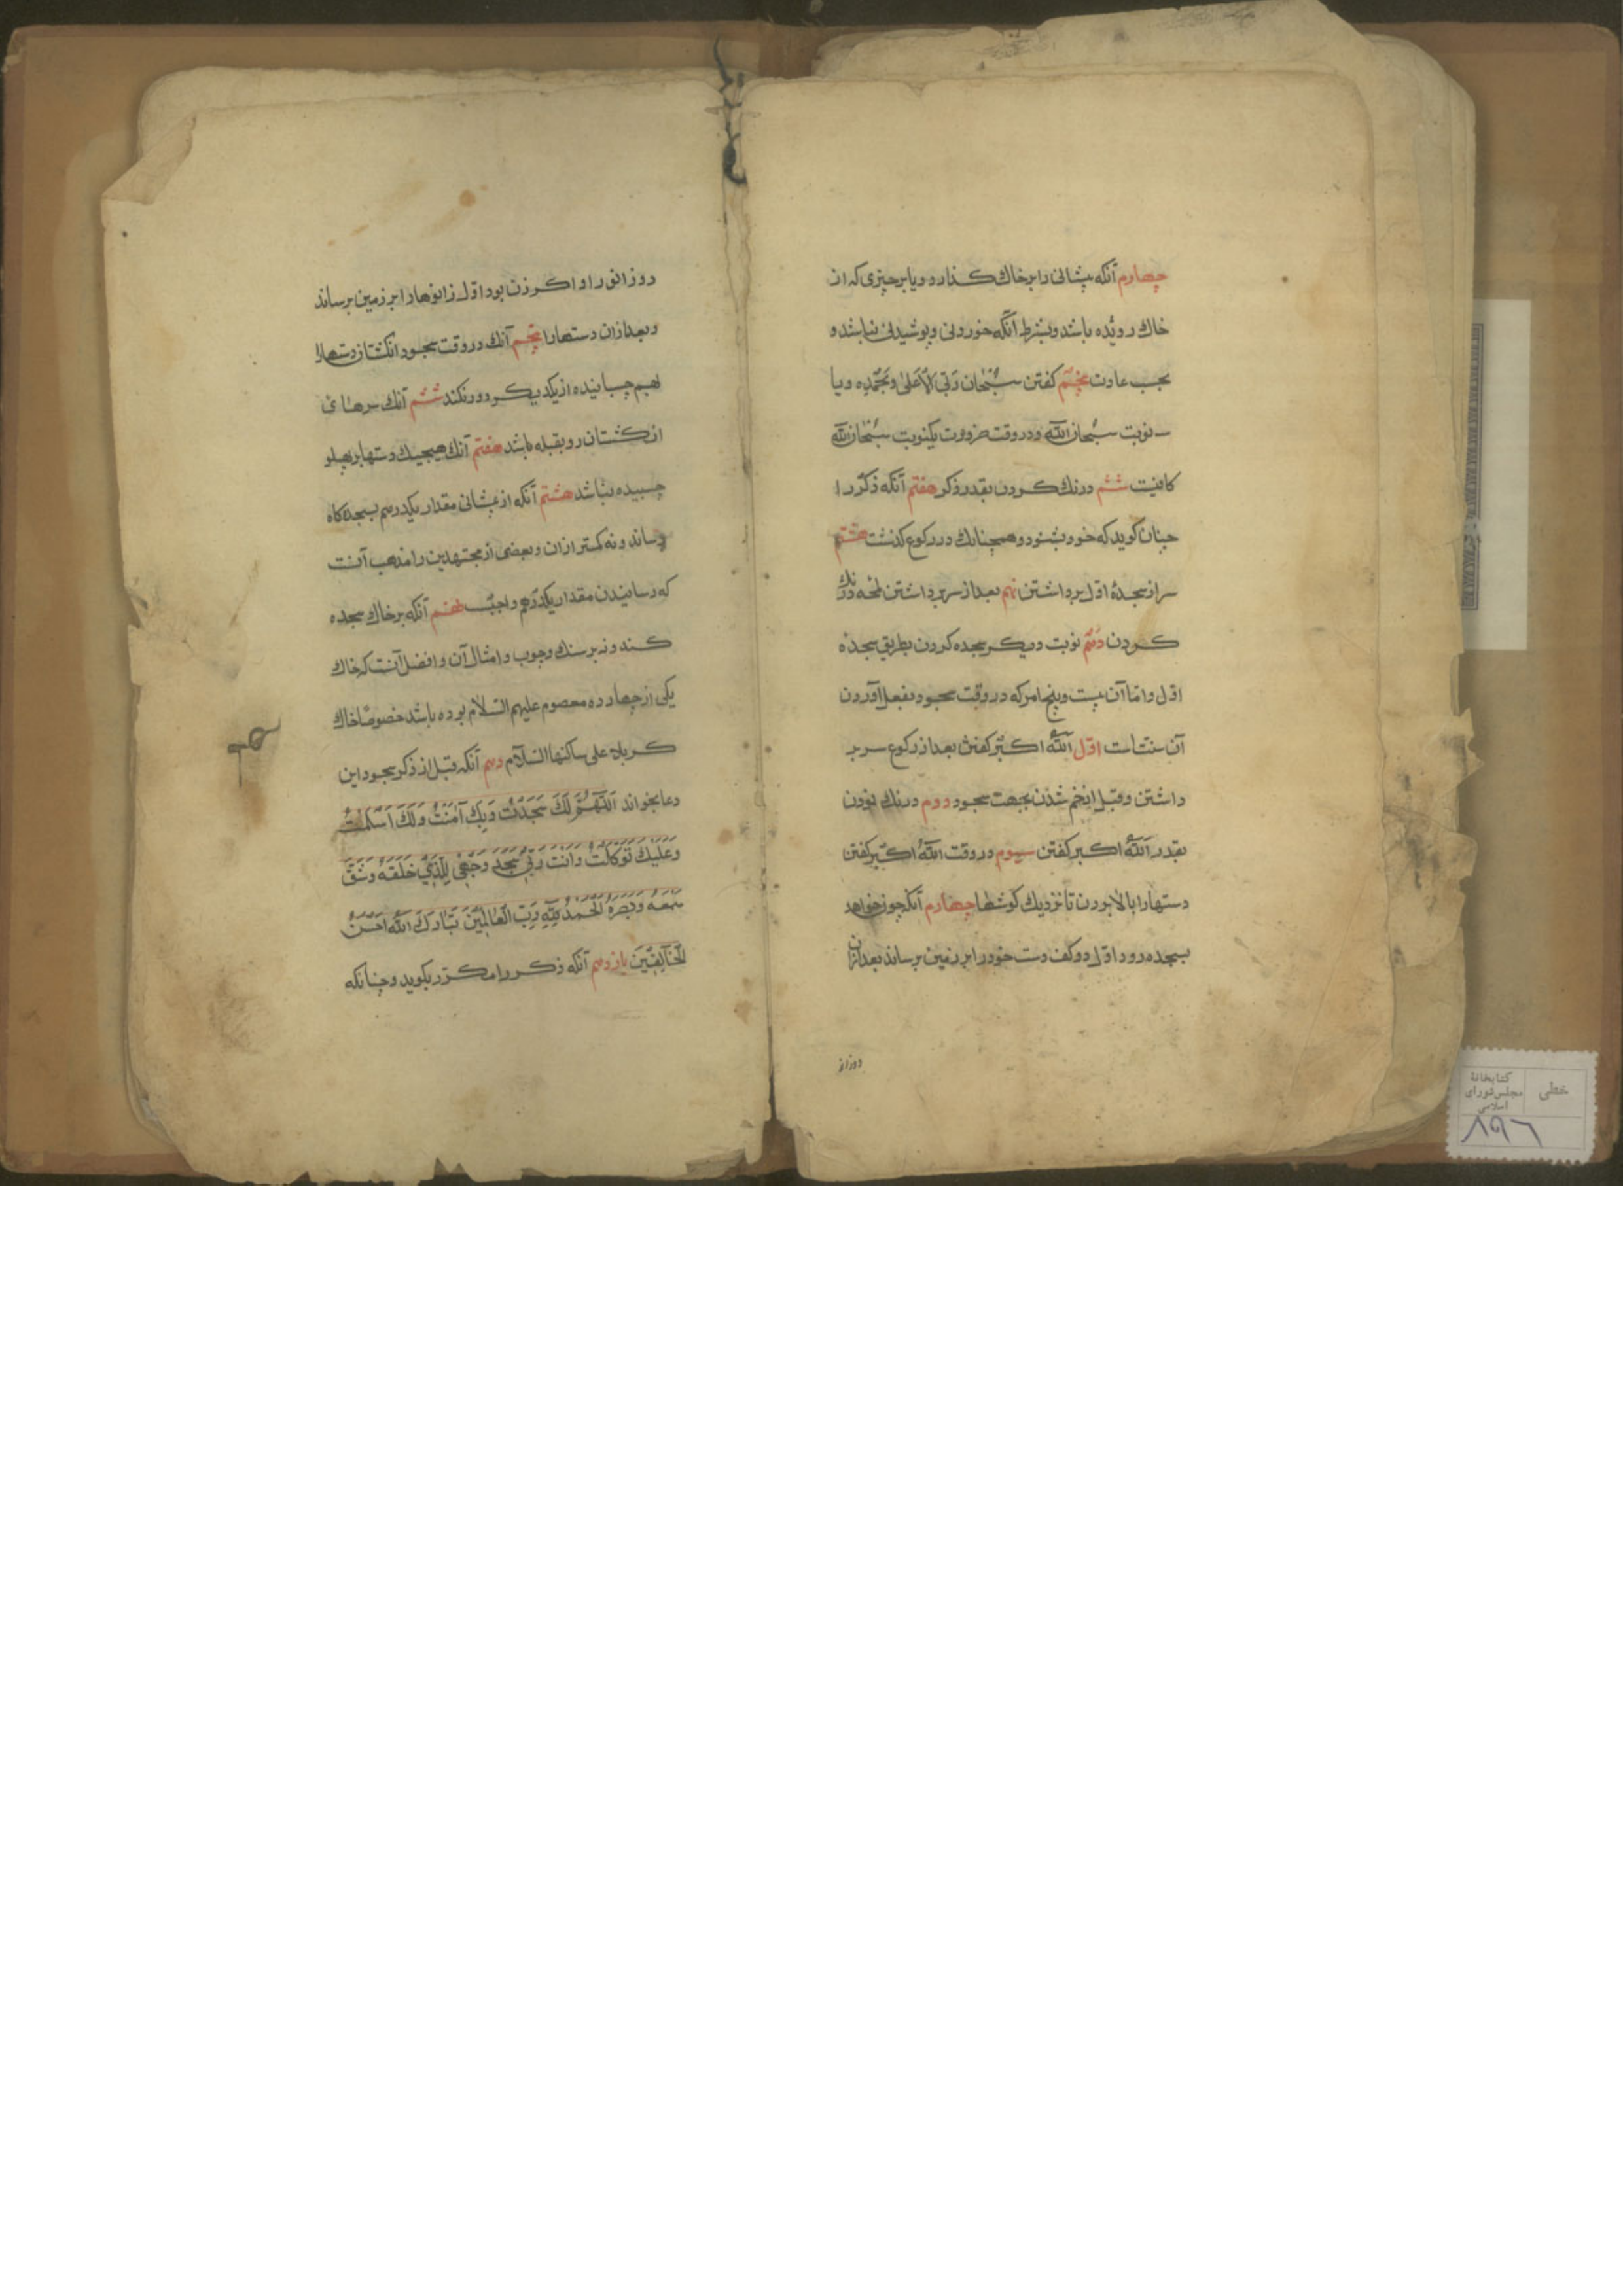 چهارم آنکه پیشانی را بر خاك كـذارد و یا بر چیزی که از
خاك روئیده باشد وبشرط آنکه خوردنی وپوشیدنی نباشد و
بحسب عادت پنجم كفتن سُبْحَان رَبّیَ الاَعْلیٰ وَبِحَمْدِه ویا
سه نوبت سُبحان اللّه ودر وقت ضرورت یکنوبت سُبْحَان اللّه
کافیست ششم درنك كـردن بقدر ذكر هفتم آنکه ذكر را
چنان کوید که خود بشنود وهمچنانك در رکوع کذشت هشتم
سر از سجدهٔ اوّل برداشتن نهم بعد از سر برداشتن لمحه درنك
كـردن دهم نوبت دیكـر سجده کردن بطریق سجدهٔ
اوّل وامّا آن بیست وپنج امر که در وقت سجود بفعل آوردن
آن سنّت است اوّل اَللّهُ اكـبر كفتن بعد از رکوع سر بر
داشتن وقبل از خم شدن بجهت سجود دویم درنك نمودن
بقدر اَللّهُ اكـبر كفتن سیوم در وقت اللّهُ اكـبر كفتن
دستها را بالا بردن تا نزدیك کوشها چهارم آنکه چون خواهد
بسجده رود اوّل دو کف دست خود را بر زمین برساند بعد از ان
دو زانو
دو زانو را و اكـر زن بود اوّل زانوها را بر زمین برساند
وبعد از ان دستها را پنجم آنك در وقت سجود انکشتان دستها را
بهم چسبانیده از یکدیكـر دور نکند ششم آنك سرهای
انكـشتان رو بقبله باشد هفتم آنك هیچیك دستها بر پهلو
چسبیده نباشد هشتم آنکه از پیشانی مقدار یکدرهم بسجده کاه
رساند ونه کمتر از ان وبعضی از مجتهدین را مذهب آنست
که رسانیدن مقدار یکدرهم واجبست نهم آنکه بر خاك سجده
كـند ونه بر سنك وچوب وامثال آن وافضل آنست که خاك
یکی از چهارده معصوم علیهم السّلام بوده باشد خصوصًا خاك
كـربلا علی ساکنها السّلام دهم آنکه قبل از ذکر سجود این
دعا بخواند اَللّهُمَّ لَكَ سَجَدْتُ وَبِكَ آمَنْتُ وَلَكَ اَسْلَمْتُ
وَعَلَیْكَ تَوَكَّلْتُ وَاَنْتَ رَبّیُ سَجَدَ وَجْهِی لِلَّذِی خَلَقَهُ وَشَقَّ
سَمْعَهُ وَبَصَرَهُ اَلْحَمْدُ لِلّهِ رَبِّ الْعَالَمِیْنَ تَبَارَكَ اللّهُ اَحْسَنُ
الْخَالِقِیْنَ یازدهم آنکه ذكـر را مكـرّر بکوید وچنانکه
کتابخانهٔ
مجلس شورای
اسلامی
خطی
۸۹۶